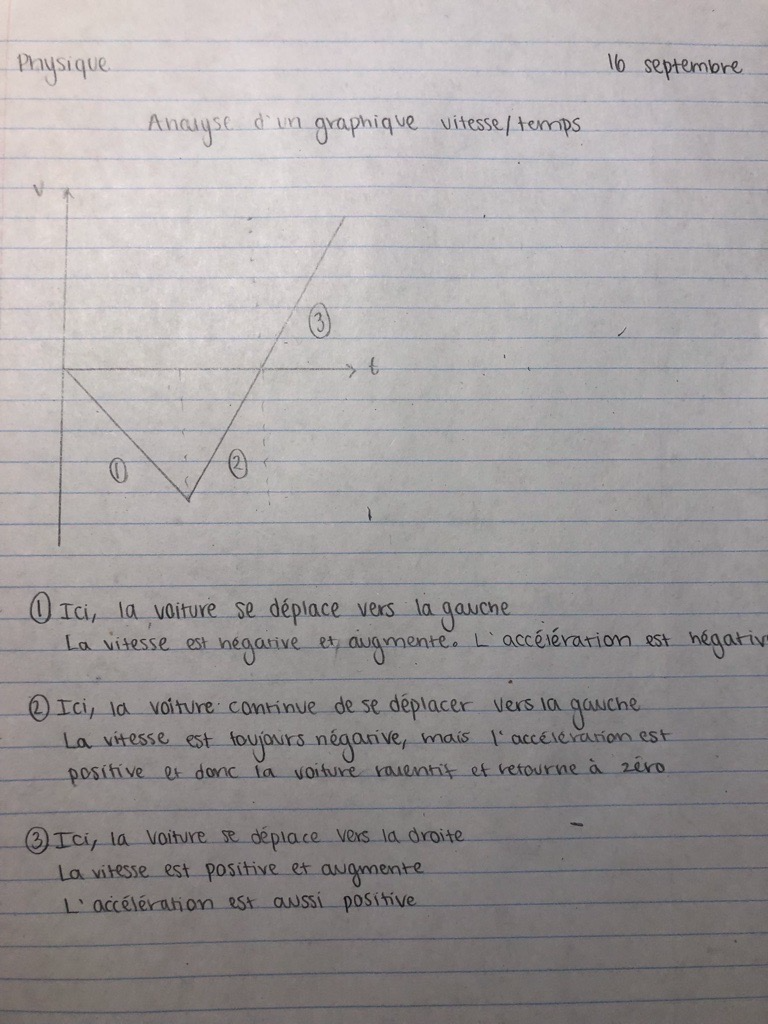 Physique
16 septembre
Analyse d'un graphique vitesse/temps
v
t
③
①
②
① Ici, la voiture se déplace vers la gauche
La vitesse est négative et augmente. L'accélération est négativ
② Ici, la voiture continue de se déplacer vers la gauche
La vitesse est toujours négative, mais l'accélération est
positive et donc la voiture ralentit et retourne à zéro
③ Ici, la voiture se déplace vers la droite
La vitesse est positive et augmente
L'accélération est aussi positive